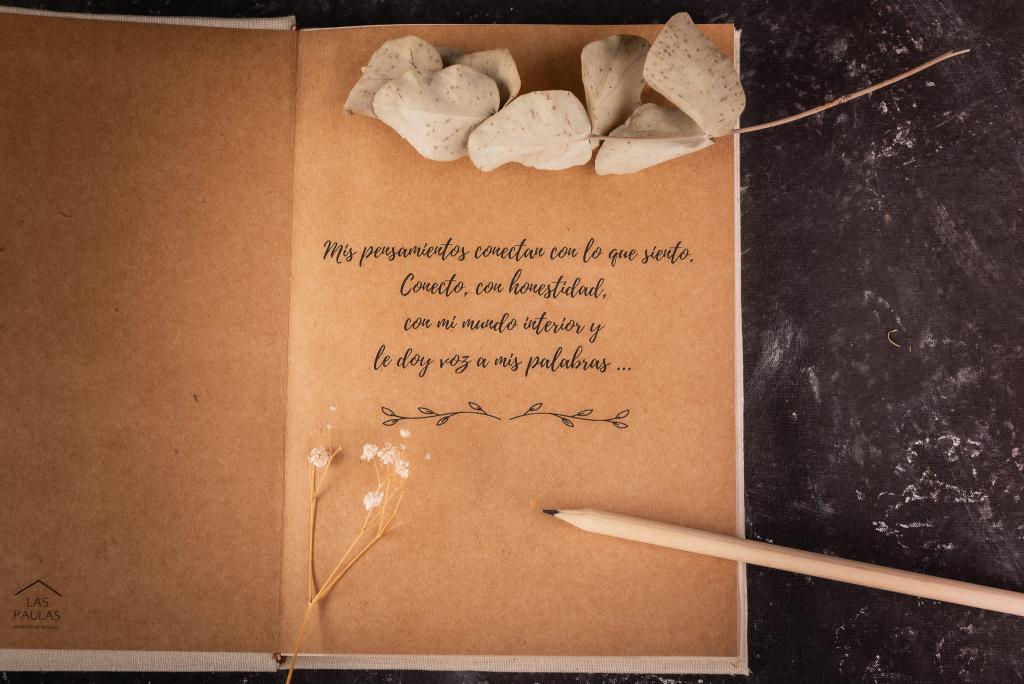 Mis pensamientos conectan con lo que siento.
Conecto, con honestidad,
con mi mundo interior y
le doy voz a mis palabras ...
LAS
PAULAS